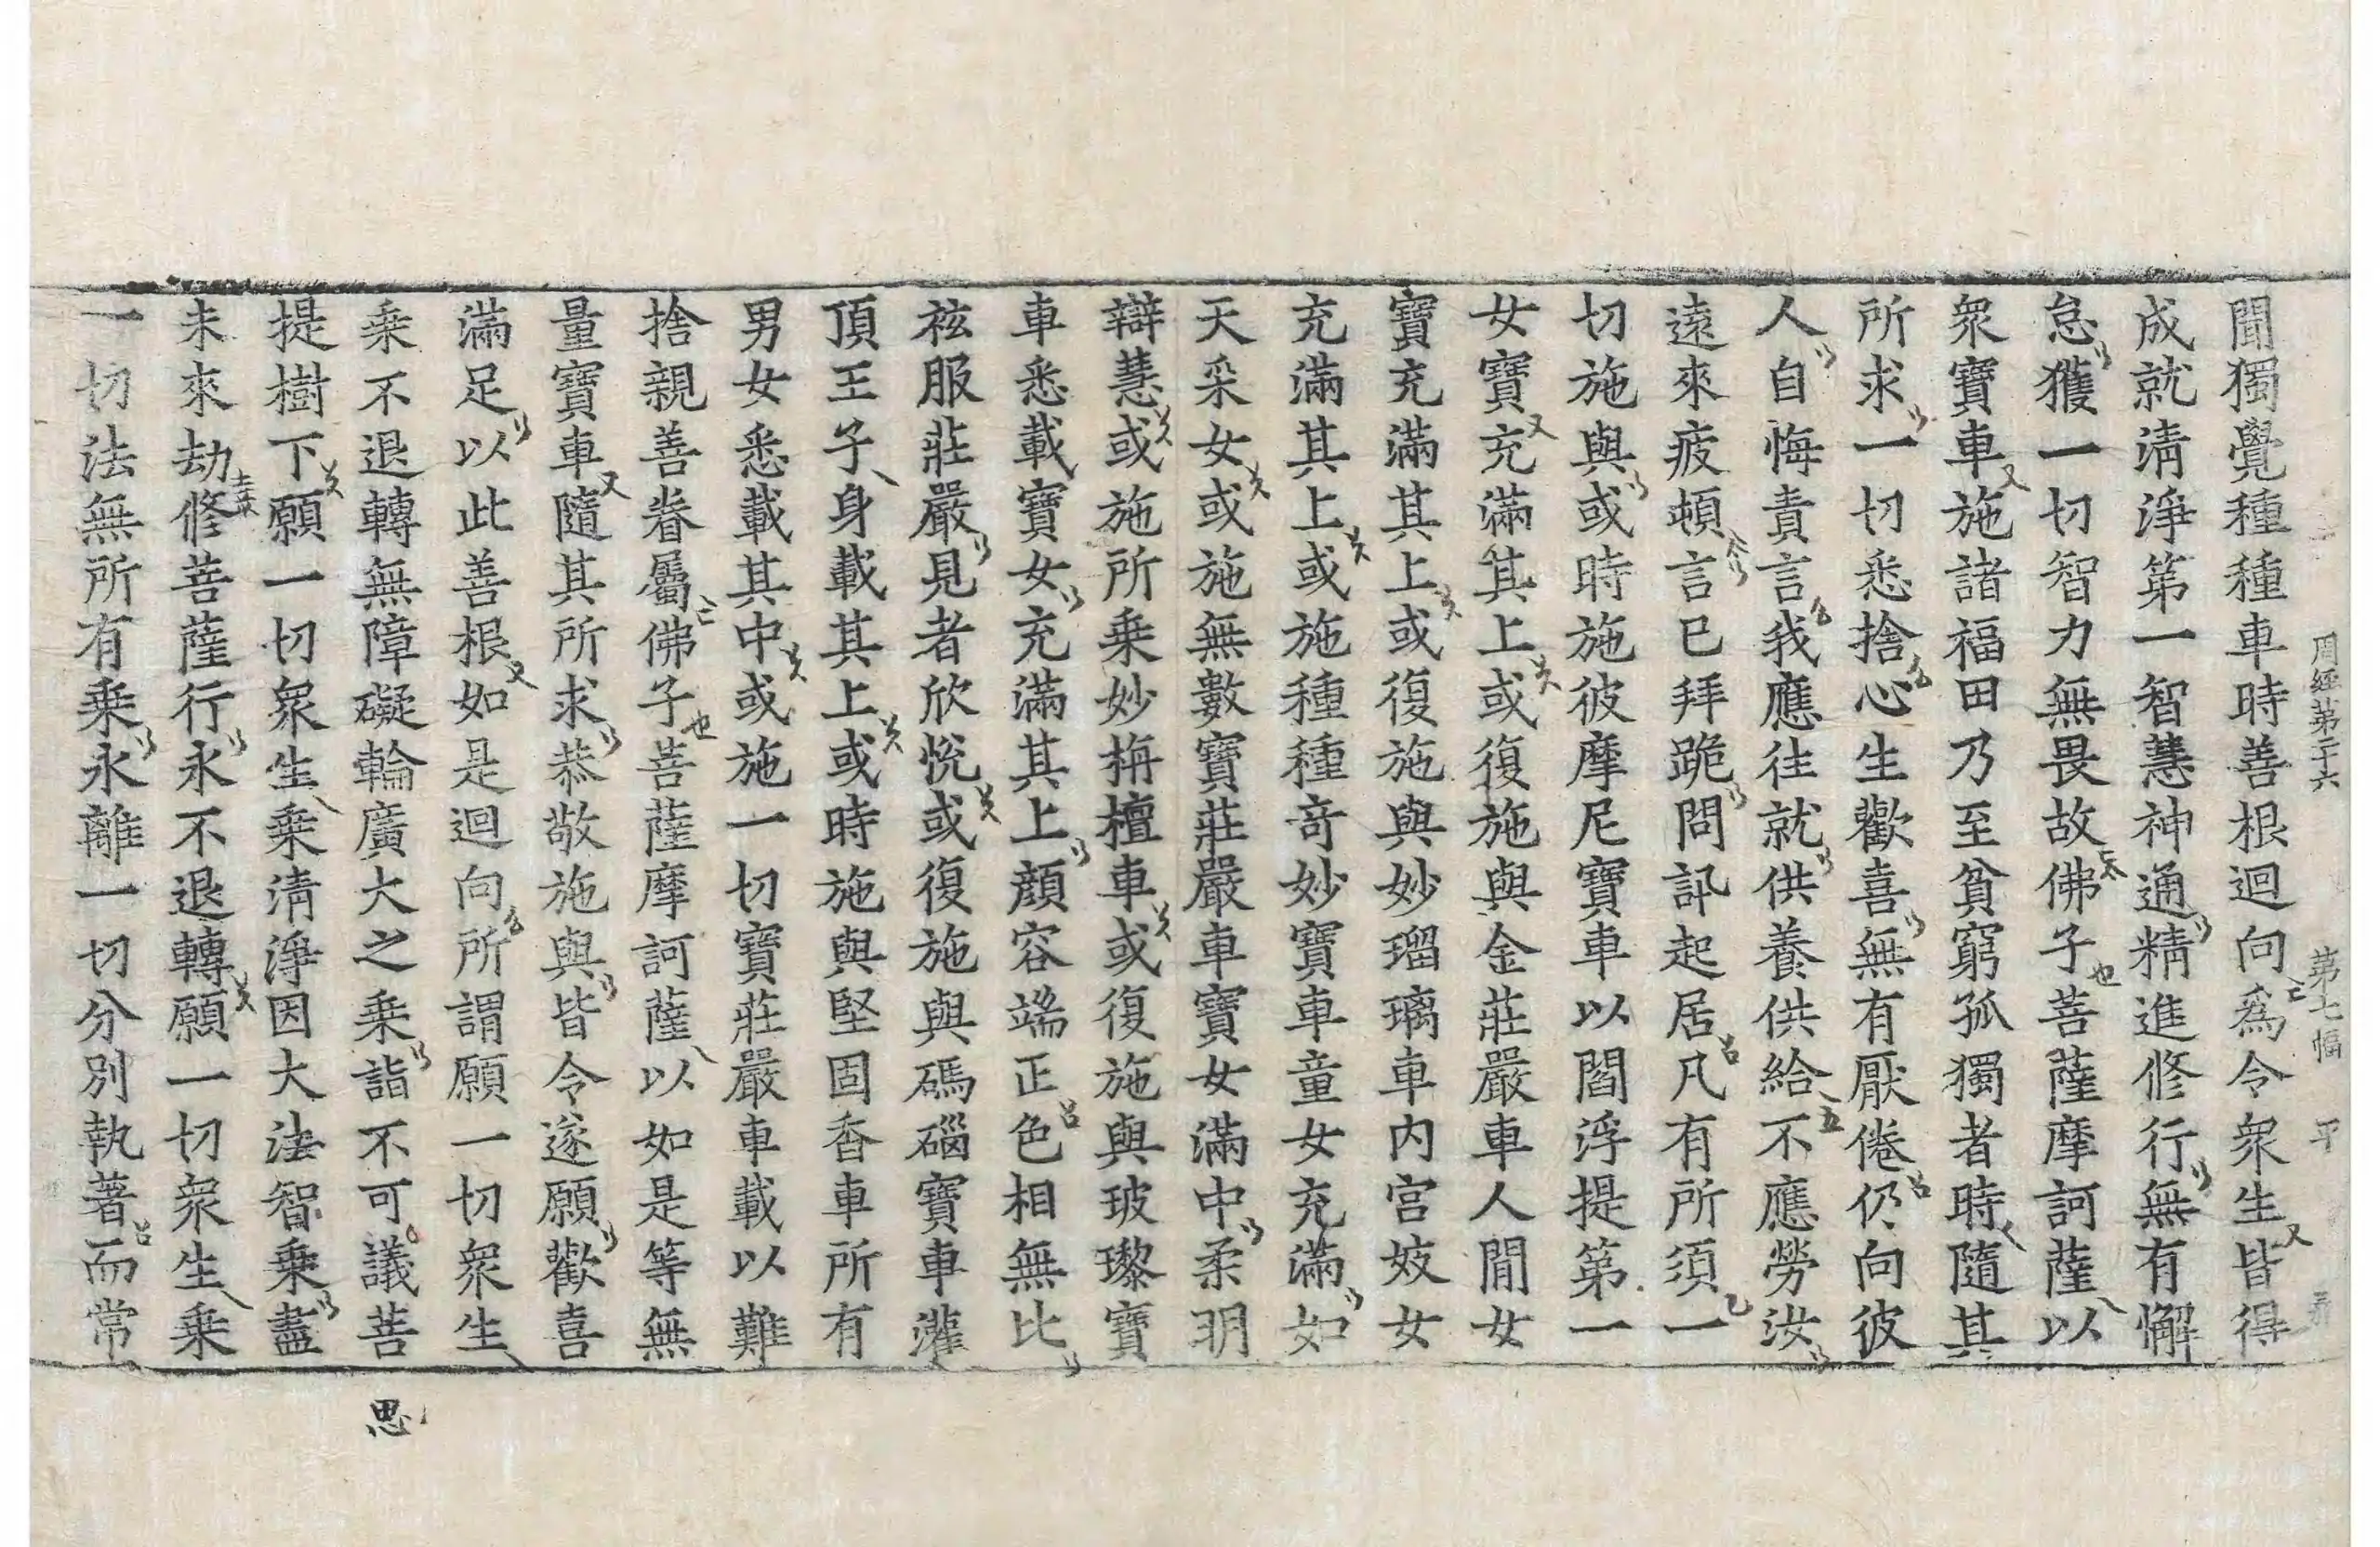 周經第二十六 第七幅 平
聞獨覺種種車時善根迴向爲令衆生皆得
成就清淨第一智慧神通精進修行無有懈
怠獲一切智力無畏故佛子菩薩摩訶薩以
衆寶車施諸福田乃至貧窮孤獨者時隨其
所求一切悉捨心生歡喜無有厭倦仍向彼
人自悔責言我應往就供養供給不應勞汝
遠來疲頓言已拜跪問訊起居凡有所須一
切施與或時施彼摩尼寶車以閻浮提第一
女寶充滿其上或復施與金莊嚴車人間女
寶充滿其上或復施與妙瑠璃車内宮妓女
充滿其上或施種種奇妙寶車童女充滿如
天采女或施無數寶莊嚴車寶女滿中柔明
辯慧或施所乘妙栴檀車或復施與玻瓈寶
車悉載寶女充滿其上顔容端正色相無比
袨服莊嚴見者欣悅或復施與碼碯寶車灌
頂王子身載其上或時施與堅固香車所有
男女悉載其中或施一切寶莊嚴車載以難
捨親善眷屬佛子菩薩摩訶薩以如是等無
量寶車隨其所求恭敬施與皆令遂願歡喜
滿足以此善根如是迴向所謂願一切衆生
乘不退轉無障礙輪廣大之乘詣不可議菩
思
提樹下願一切衆生乘清淨因大法智乘盡
未來劫修菩薩行永不退轉願一切衆生乘
一切法無所有乘永離一切分別執著而常